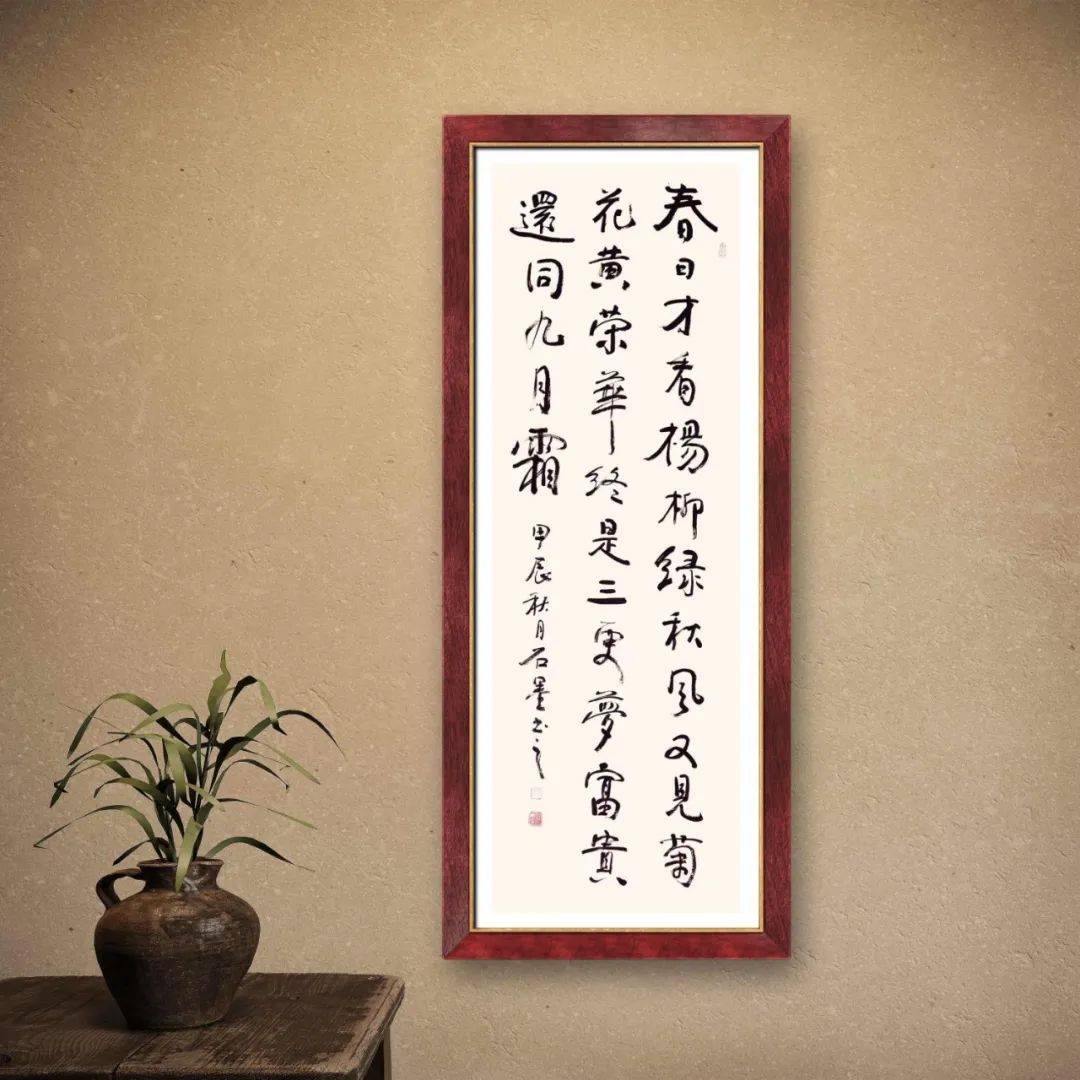 春日才看楊柳緑秋風又見菊
花黄荣華终是三更夢富貴
還同九月霜
甲辰秋月石墨书之